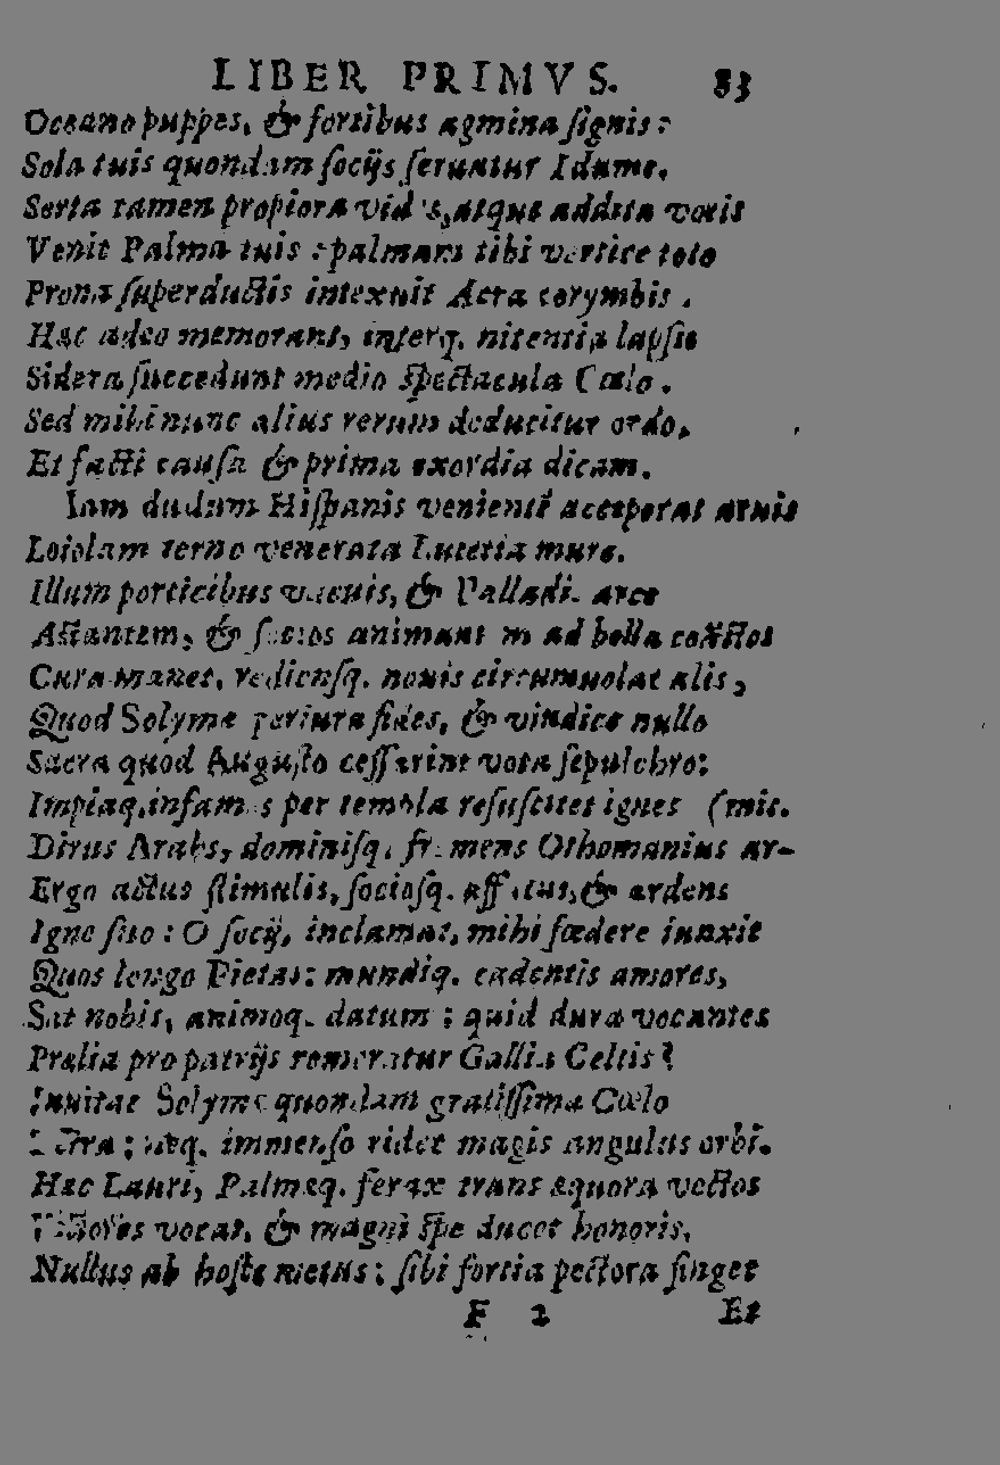 LIBER PRIMVS. 83
Oceano puppes, & fortibus agmina ſignis:
Sola tuis quondam ſocijs ſeruatur Idume.
Serta tamen propiora vides, atque addita votis
Venit Palma tuis: palmam tibi vertice toto
Prona ſuperductis intexuit Acra corymbis.
Hac adeo memorant, interq. nitentia lapſu
Sidera ſuccedunt medio ſpectacula Cœlo.
Sed mihi nunc alius rerum deducitur ordo,
Et facti cauſa & prima exordia dicam.
Iam dudum Hiſpanis venientē acceperat aruis
Loiolam terno venerata Lutetia muro.
Illum porticibus vacuis, & Palladis arce
Aſtantem, & ſocios animantem ad bella
Cura manet, rediensq. nouis circumuolat alis,
Quod Solymæ periura fides, & vindice nullo
Sacra quod Auguſto ceſſarint vota ſepulchro:
Impiaq. infames per templa reſuſcitet ignes (mis.
Dirus Arabs, dominiſq. fremens Othomanius ar-
Ergo actus ſtimulis, ſocioſq. affatus, & ardens
Igne ſuo: O ſocij, inclamat, mihi fœdere iunxit
Quos longo Pietas: mundiq. cadentis amores,
Sat nobis, animoq. datum: quid dura vocantes
Prælia pro patrijs remoratur Gallia Celtis?
Inuitat Solymæ quondam gratiſſima Cœlo
Terra: neq. immenſo ridet magis angulus orbi.
Hæc Lauri, Palmæq. ferax trans æquora vectos
Victores vocat, & magni ſpe ducet honoris,
Nullus ab hoſte metus: ſibi fortia pectora finget
F 2 Et